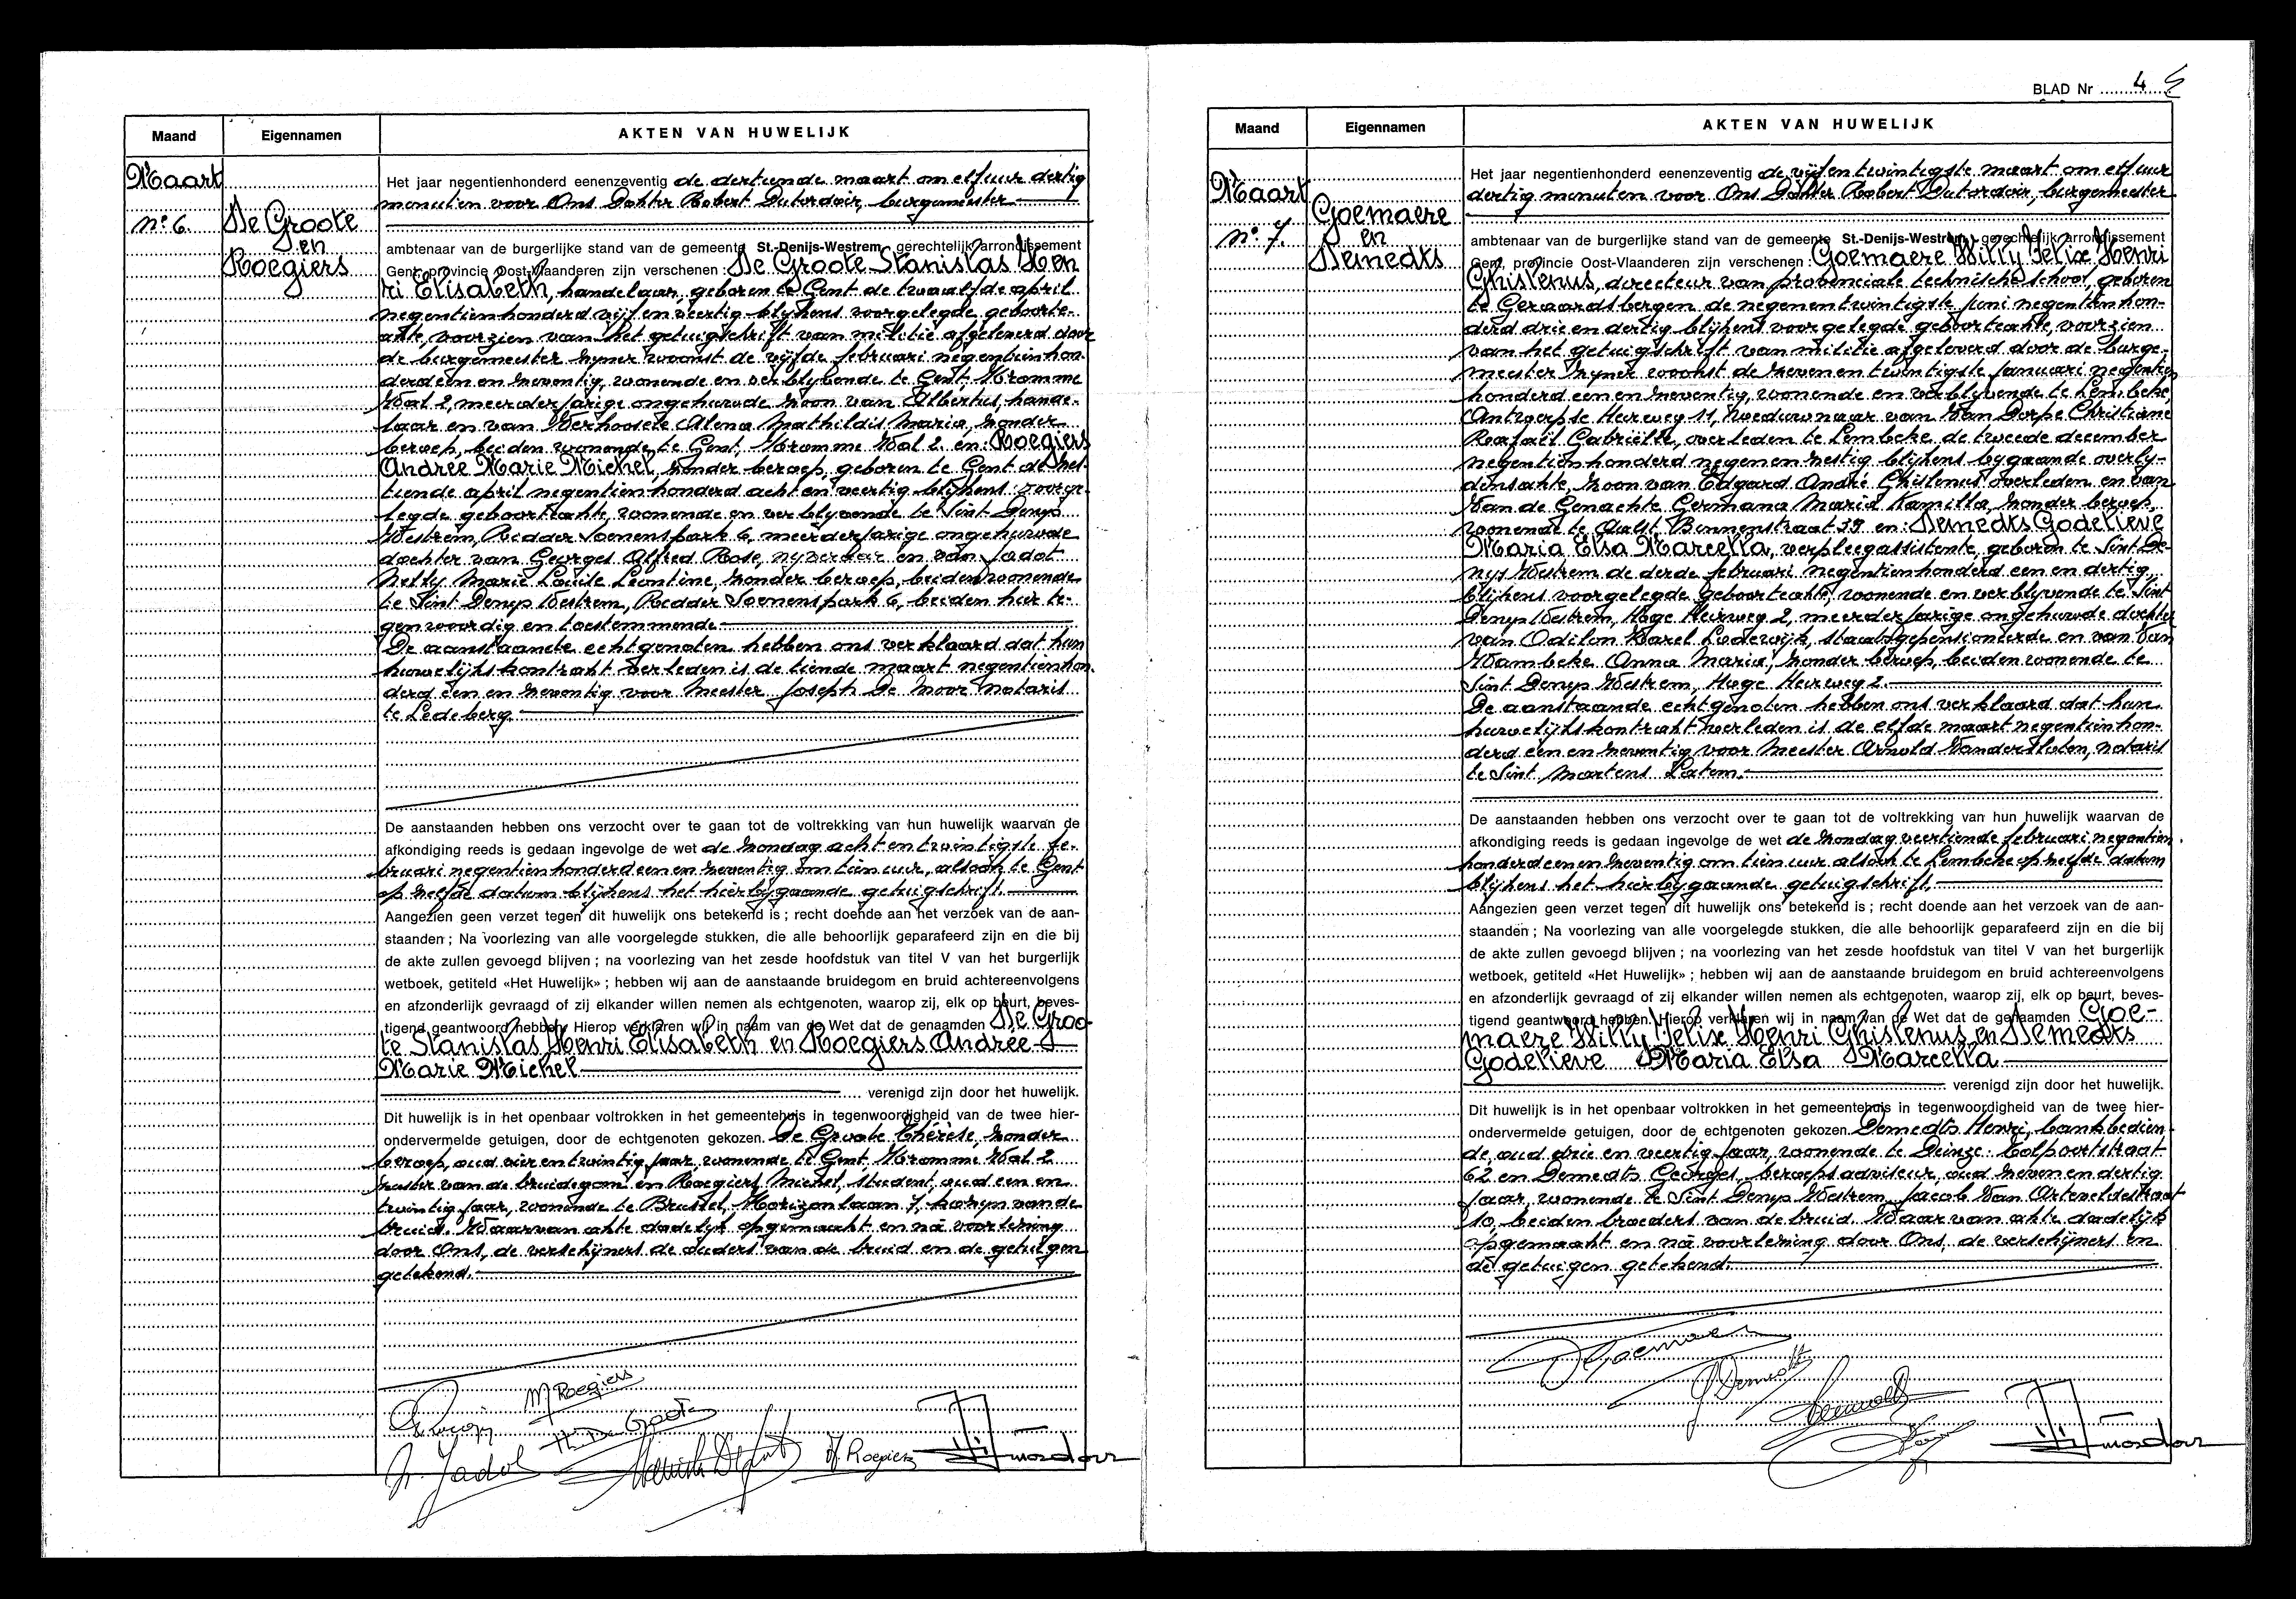 Maand Eigennamen AKTEN VAN HUWELIJK
Maart
nº 6.
De Groote
en
Roegiers
Het jaar negentienhonderd eenenzeventig de dertiende maart om elf uur dertig
minuten voor Ons Dokter Robert Dutordoir, burgemeester
ambtenaar van de burgerlijke stand van de gemeente St.-Denijs-Westrem, gerechtelijk arrondissement
Gent, provincie Oost-Vlaanderen zijn verschenen : De Groote Stanislas Hen
ri Elisabeth, handelaar, geboren te Gent de twaalfde april
negentienhonderd vijf en veertig blijkens voorgelegde geboorte-
akte voorzien van het getuigschrift van militie afgeleverd door
de burgemeester zijner woonst de vijfde februari negentienhon-
derd een en zeventig, wonende en verblijvende te Gent, Kromme
Wal 2, meerderjarige ongehuwde zoon van Albertus, hande-
laar en van Verhoosele Alena Mathildis Maria, zonder
beroep, beiden wonende te Gent, Kromme Wal 2. en: Roegiers
Andree Marie Michel, zonder beroep, geboren te Gent de zes-
tiende april negentienhonderd acht en veertig blijkens voorge-
legde geboorteakte, wonende en verblijvende te Sint Denijs
Westrem, Ridder Soenenspark 6, meerderjarige ongehuwde
dochter van Georges Alfred Rose, nijveraar en van Jadot
Nelly Marie Louise Leontine, zonder beroep, beiden wonende
te Sint Denijs Westrem, Ridder Soenenspark 6, beiden hier te-
genwoordig en toestemmende.
De aanstaande echtgenoten hebben ons verklaard dat hun
huwelijkskontrakt verleden is de tiende maart negentienhon-
derd een en zeventig voor Meester Joseph De Moor notaris
te Ledeberg.
De aanstaanden hebben ons verzocht over te gaan tot de voltrekking van hun huwelijk waarvan de
afkondiging reeds is gedaan ingevolge de wet de zondag acht en twintigste fe-
bruari negentienhonderd een en zeventig om tien uur, alsook te Gent
op zelfde datum blijkens het hierbijgaande getuigschrift.
Aangezien geen verzet tegen dit huwelijk ons betekend is ; recht doende aan het verzoek van de aan-
staanden ; Na voorlezing van alle voorgelegde stukken, die alle behoorlijk geparafeerd zijn en die bij
de akte zullen gevoegd blijven ; na voorlezing van het zesde hoofdstuk van titel V van het burgerlijk
wetboek, getiteld «Het Huwelijk» ; hebben wij aan de aanstaande bruidegom en bruid achtereenvolgens
en afzonderlijk gevraagd of zij elkander willen nemen als echtgenoten, waarop zij, elk op beurt, beves-
tigend geantwoord hebben. Hierop verklaren wij in naam van de Wet dat de genaamden De Groo-
te Stanislas Henri Elisabeth en Roegiers Andree
Marie Michel
verenigd zijn door het huwelijk.
Dit huwelijk is in het openbaar voltrokken in het gemeentehuis in tegenwoordigheid van de twee hier-
ondervermelde getuigen, door de echtgenoten gekozen. De Groote Thérèse, zonder
beroep, oud vier en twintig jaar, wonende te Gent Kromme Wal 2
zuster van de bruidegom en Roegiers Michel, student, oud een en
twintig jaar, wonende te Brussel, Horizonlaan 7, kozijn van de
bruid. Waarvan akte dadelijk opgemaakt en na voorlezing
door Ons, de verschijners de ouders van de bruid en de getuigen
getekend.
M Roegiers
Th. De Groote
N. Jadot
A. Roegiers
BLAD Nr 4
Maand Eigennamen AKTEN VAN HUWELIJK
Maart
nº 7.
Goemaere
en
Demedts
Het jaar negentienhonderd eenenzeventig de vijf en twintigste maart om elf uur
dertig minuten voor Ons Dokter Robert Dutordoir, burgemeester
ambtenaar van de burgerlijke stand van de gemeente St.-Denijs-Westrem, gerechtelijk arrondissement
Gent, provincie Oost-Vlaanderen zijn verschenen : Goemaere Willy Felix Henri
Ghislenus, directeur van provinciale technische school, geboren
te Geraardsbergen de negenentwintigste juni negentienhon-
derd drie en dertig blijkens voorgelegde geboorteakte, voorzien
van het getuigschrift van militie afgeleverd door de burge-
meester zijner woonst de zevenentwintigste januari negentien
honderd een en zeventig, wonende en verblijvende te Lembeke,
Antwerpse Heirweg 11, weduwnaar van Van Dorpe Christiane
Rafaël Gabriëlle, overleden te Lembeke de tweede december
negentienhonderd negen en zestig blijkens bijgaande overlij-
densakte, zoon van Edgard André Ghislenus overleden en van
Van de Genachte Germana Maria Kamilla, zonder beroep,
wonende te Aalst, Binnenstraat 39 en: Demedts Godelieve
Maria Elsa Marcella, verpleegassistente, geboren te Sint De-
nijs Westrem de derde februari negentienhonderd een en dertig,
blijkens voorgelegde geboorteakte, wonende en verblijvende te Sint
Denijs Westrem, Hoge Heirweg 2, meerderjarige ongehuwde dochter
van Odilon Karel Lodewijk, staatsgepensioneerde en van Van
Wambeke Anna Maria, zonder beroep, beiden wonende te
Sint Denijs Westrem, Hoge Heirweg 2.
De aanstaande echtgenoten hebben ons verklaard dat hun
huwelijkskontrakt verleden is de elfde maart negentienhon-
derd een en zeventig voor Meester Arnold Vandersloten, notaris
te Sint Martens Latem.
De aanstaanden hebben ons verzocht over te gaan tot de voltrekking van hun huwelijk waarvan de
afkondiging reeds is gedaan ingevolge de wet de zondag veertiende februari negentien
honderd een en zeventig om tien uur alsook te Lembeke op zelfde datum
blijkens het hierbijgaande getuigschrift.
Aangezien geen verzet tegen dit huwelijk ons betekend is ; recht doende aan het verzoek van de aan-
staanden ; Na voorlezing van alle voorgelegde stukken, die alle behoorlijk geparafeerd zijn en die bij
de akte zullen gevoegd blijven ; na voorlezing van het zesde hoofdstuk van titel V van het burgerlijk
wetboek, getiteld «Het Huwelijk» ; hebben wij aan de aanstaande bruidegom en bruid achtereenvolgens
en afzonderlijk gevraagd of zij elkander willen nemen als echtgenoten, waarop zij, elk op beurt, beves-
tigend geantwoord hebben. Hierop verklaren wij in naam van de Wet dat de genaamden Goe-
maere Willy Felix Henri Ghislenus en Demedts
Godelieve Maria Elsa Marcella
verenigd zijn door het huwelijk.
Dit huwelijk is in het openbaar voltrokken in het gemeentehuis in tegenwoordigheid van de twee hier-
ondervermelde getuigen, door de echtgenoten gekozen. Demedts Henri, bankbedien-
de, oud drie en veertig jaar, wonende te Deinze Tolpoortstraat
62 en Demedts Georges, beroepsadviseur, oud zeven en dertig
jaar, wonende te Sint Denijs Westrem, Jacob Van Arteveldestraat
10, beiden broeders van de bruid. Waarvan akte dadelijk
opgemaakt en na voorlezing door Ons, de verschijners en
de getuigen getekend.